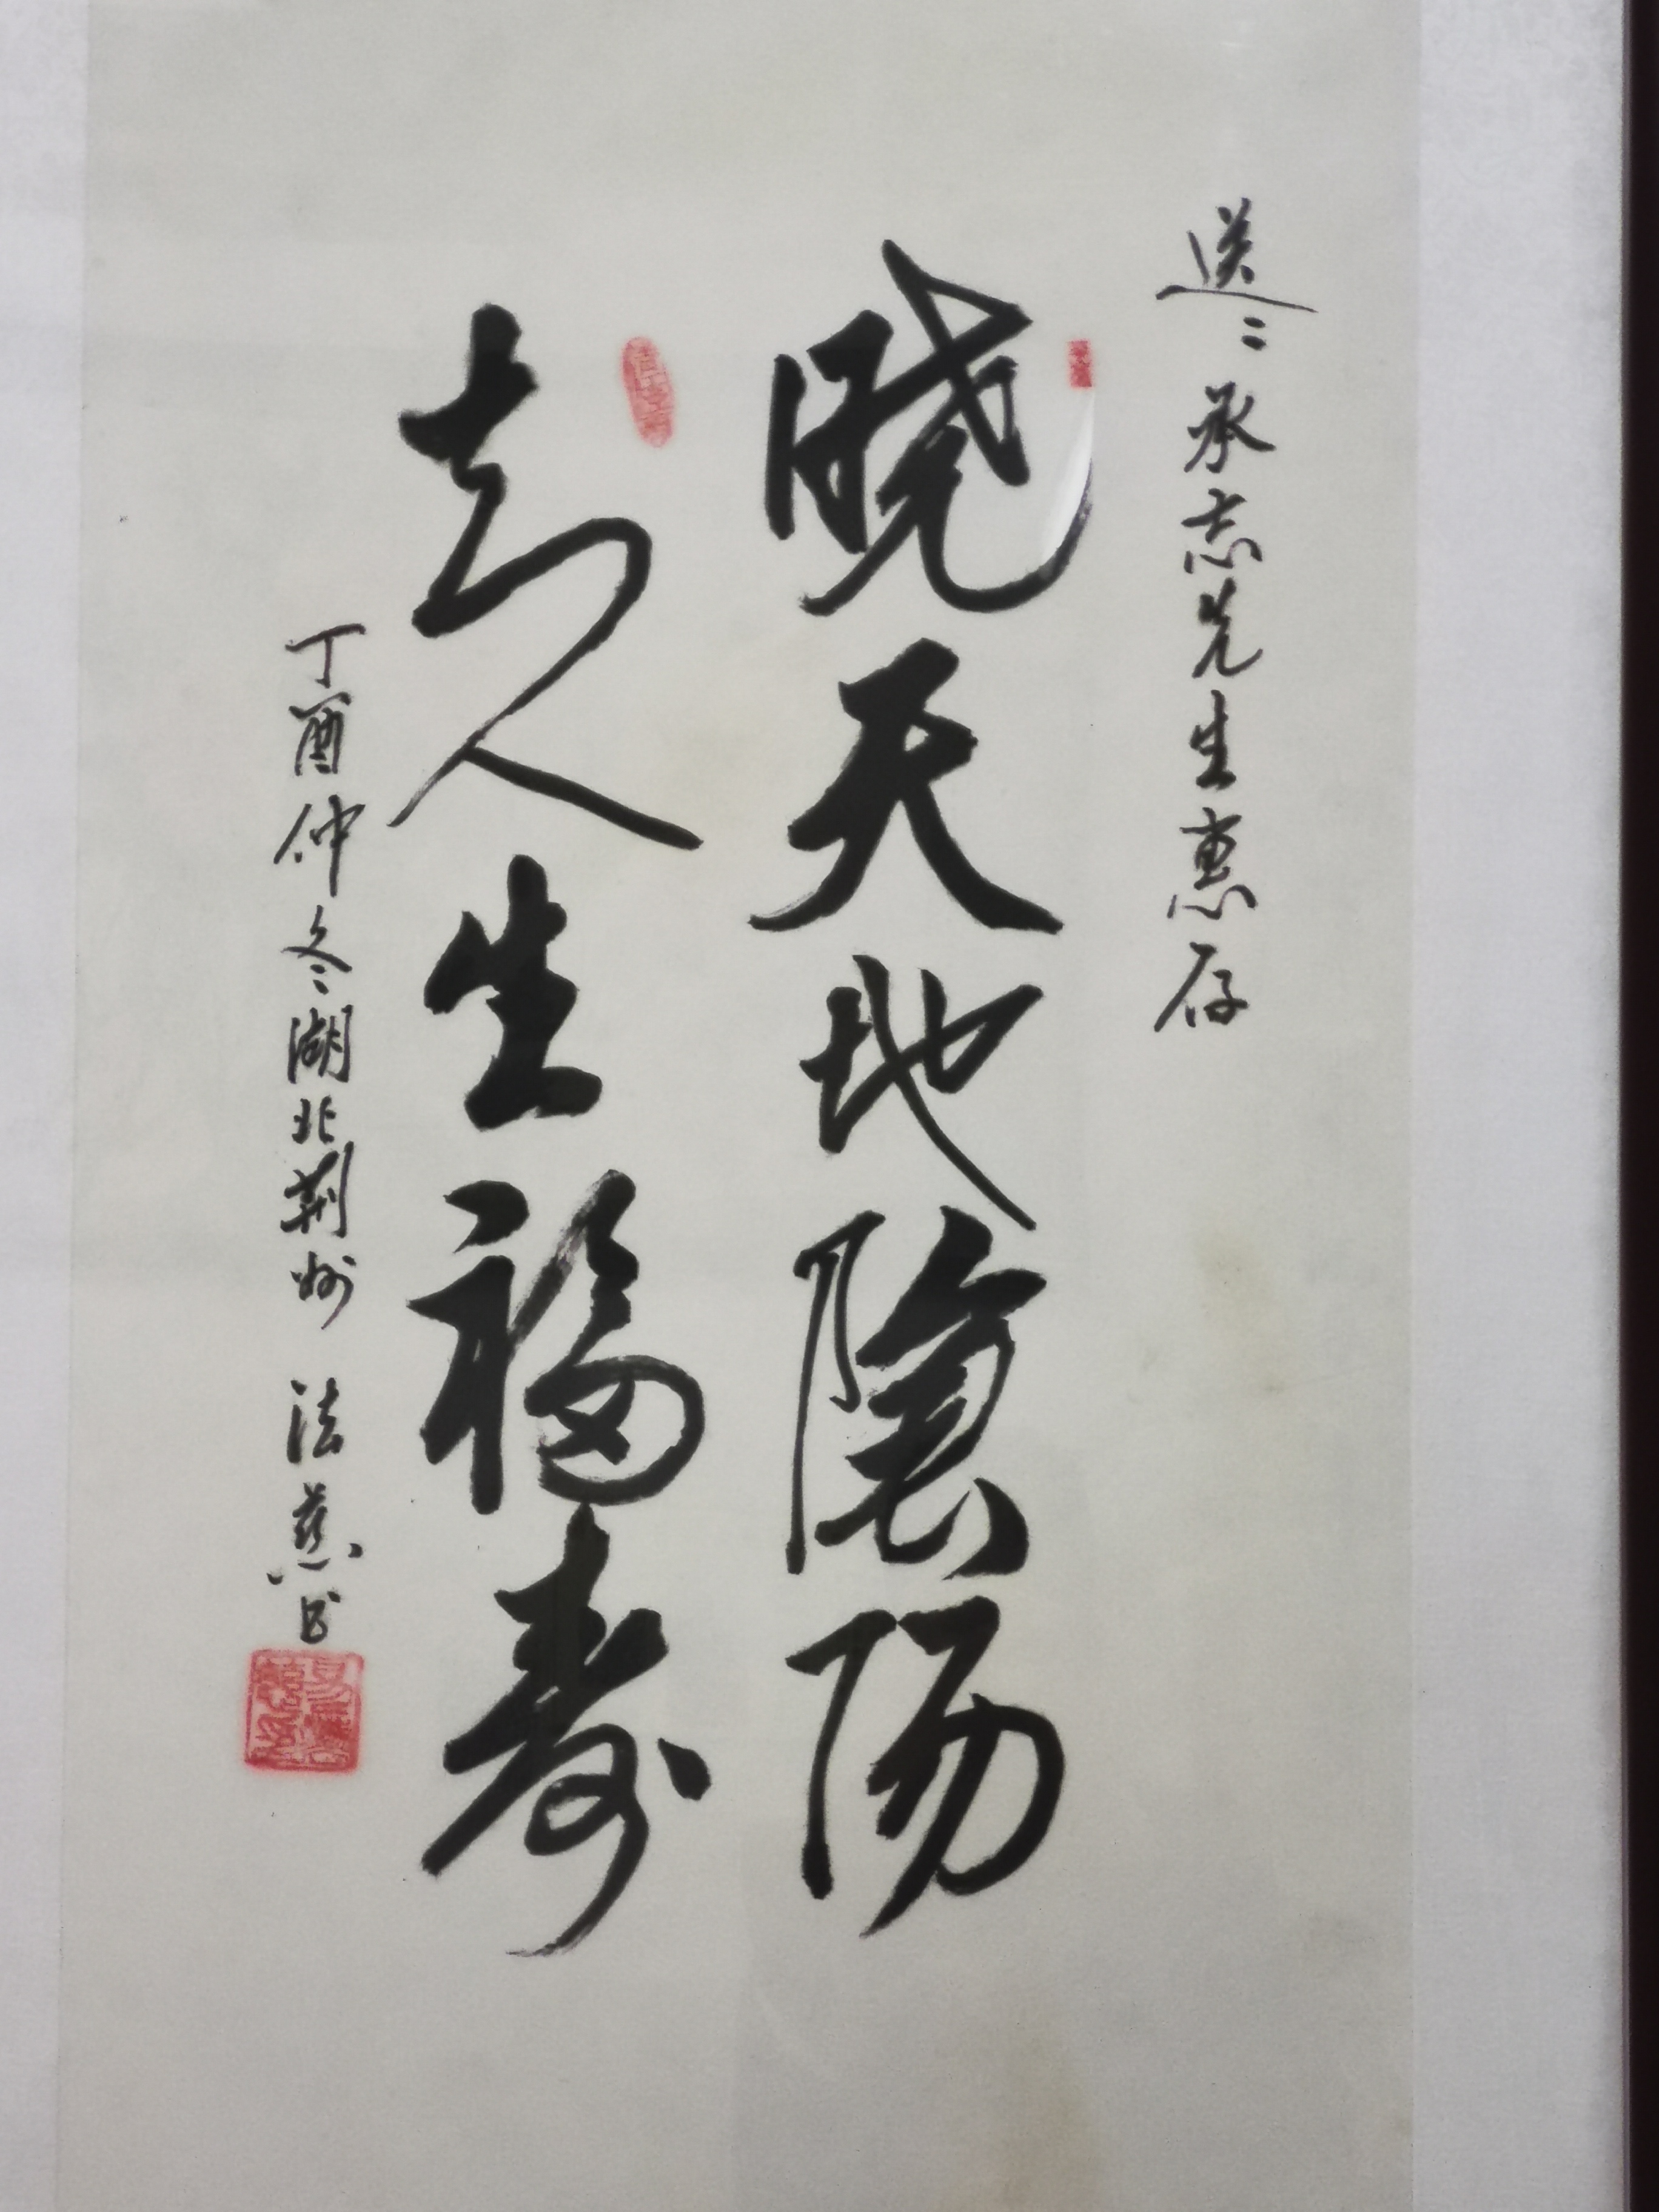 送:承志先生惠存
晓天地陰陽
知人生福寿
丁酉仲冬湖北荆州 法慈书